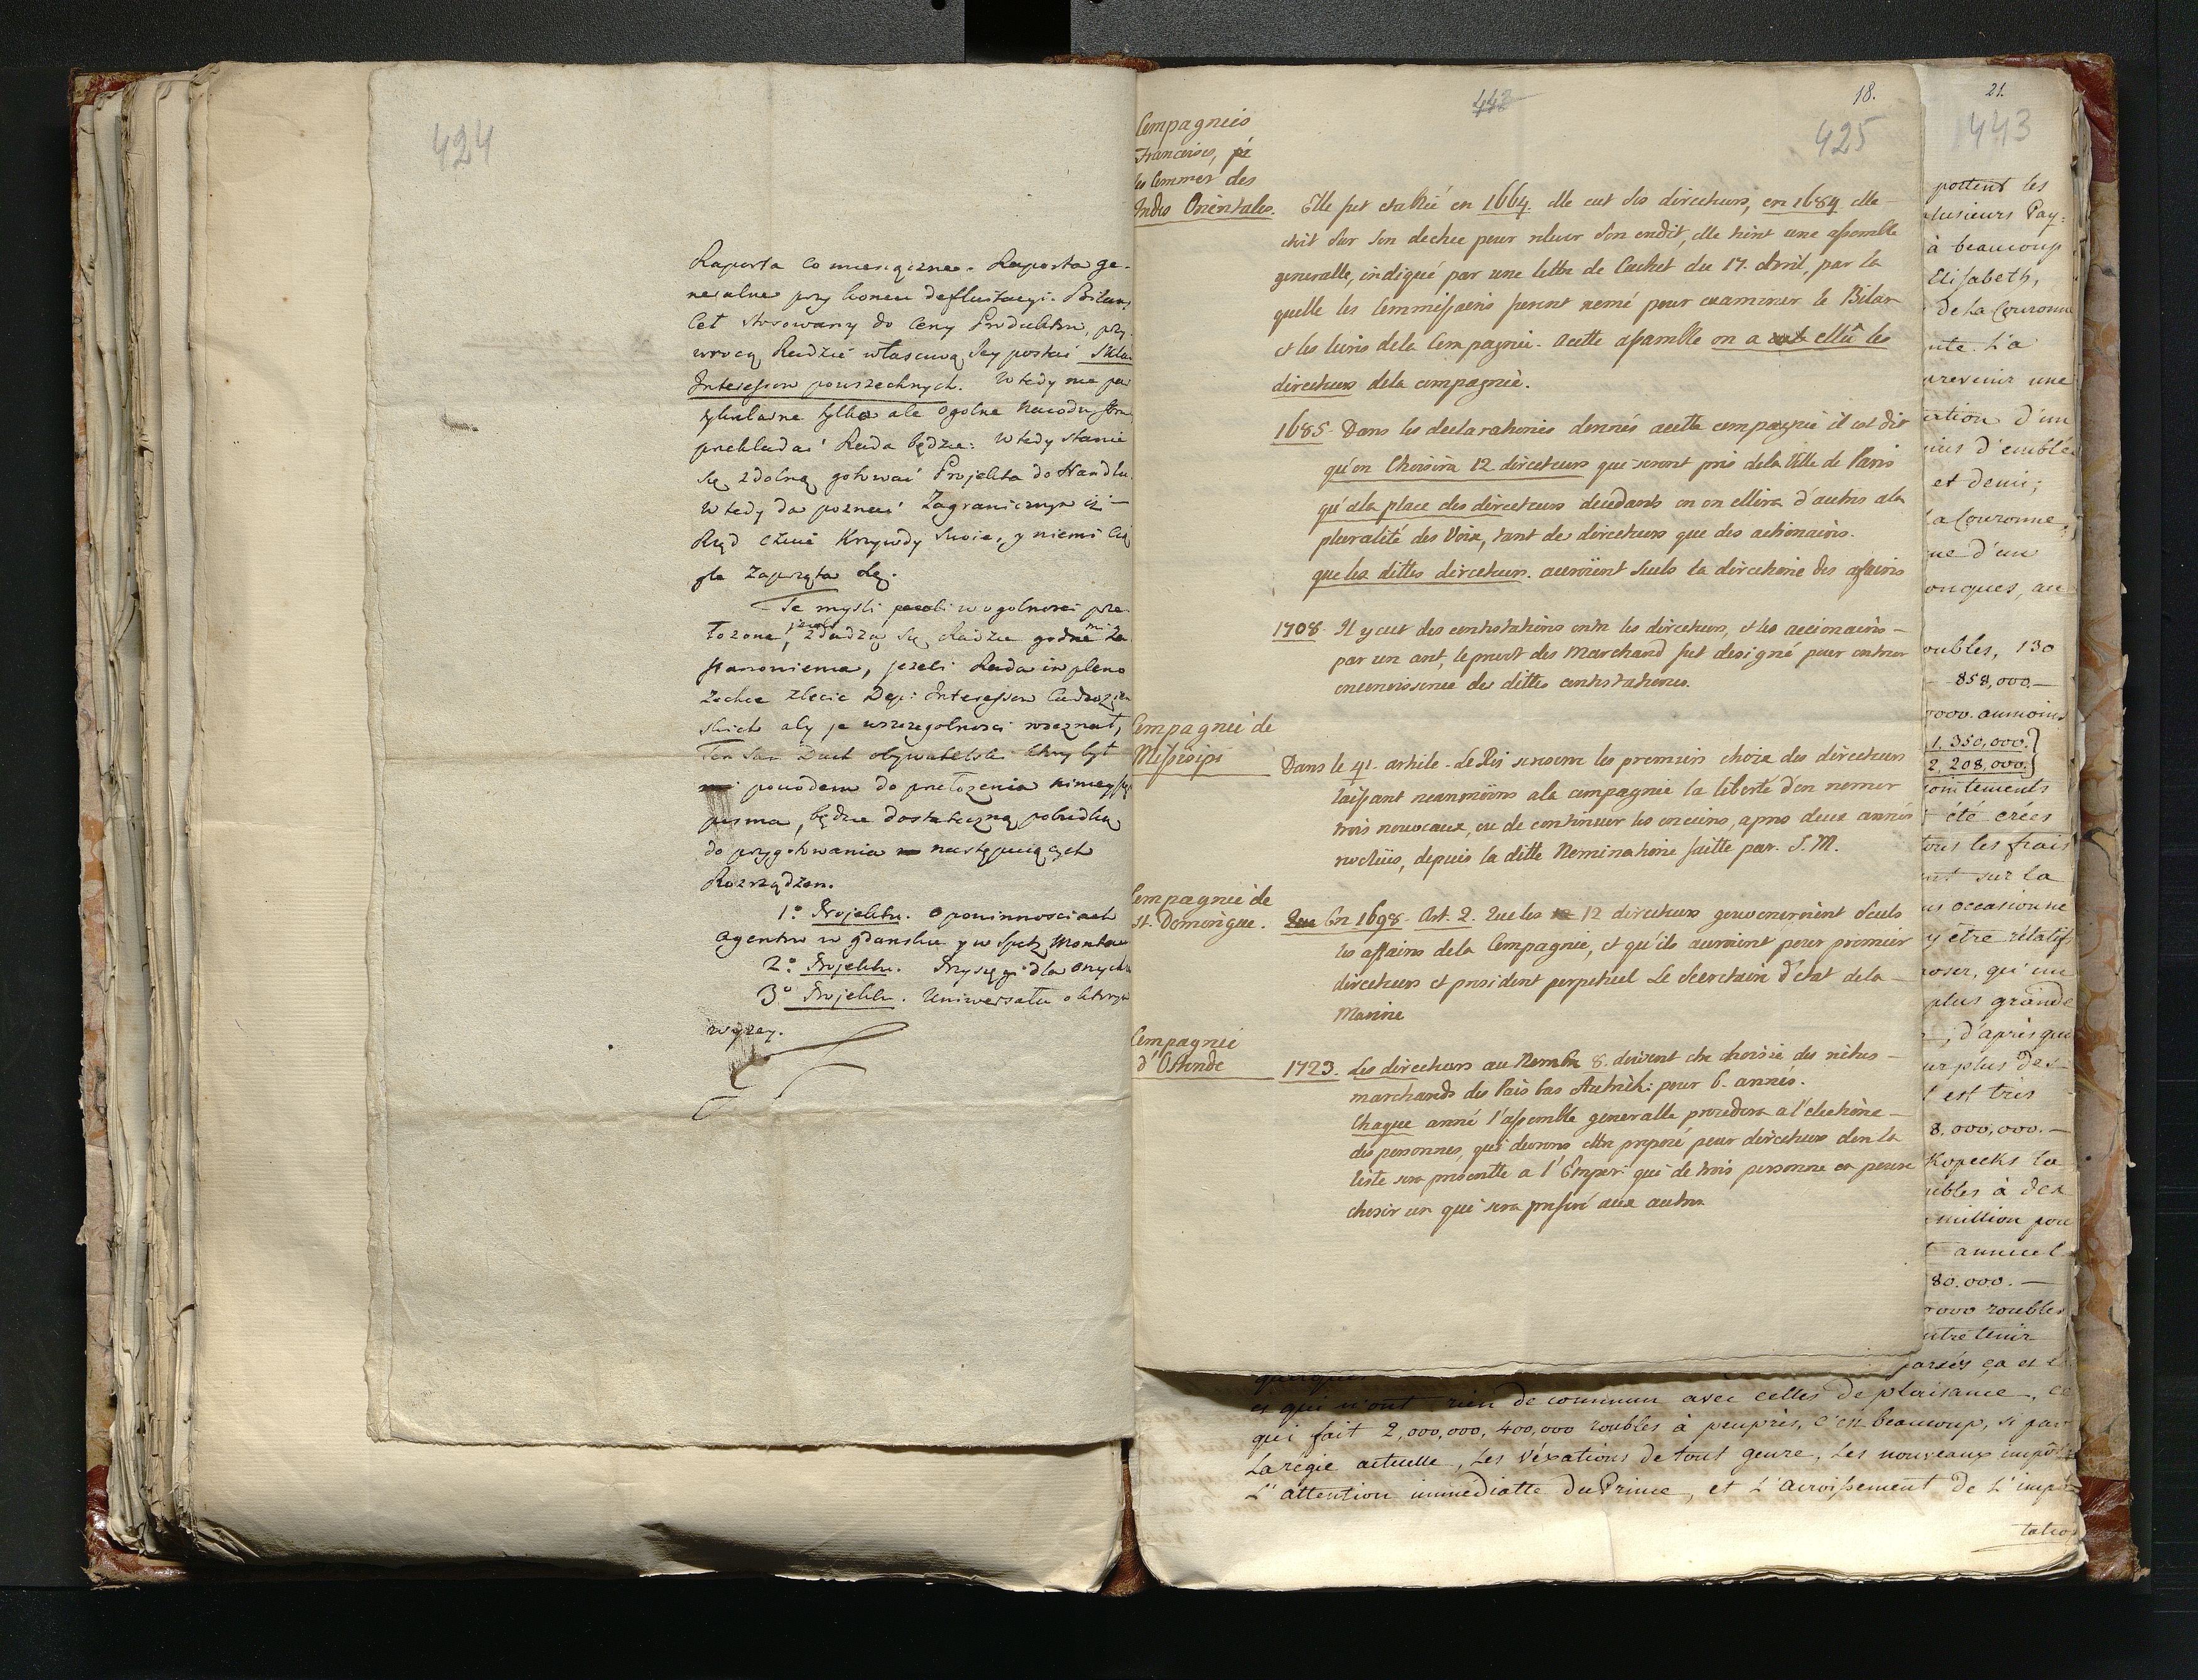 424
Raporta co miesięczne. Raporta ge-
neralne przy koncu defluitacyi. Bilans
Ceł stosowany do Ceny Produktow, przy-
wrocą Radzie własciwą Jey postać Skła
Interessow powszechnych. Wtedy nie par
tykularne tylko ale ogolne Narodu
przekładać Rada będzie: Wtedy stanie
się zdolną gotować Projekta do Handlu.
Wtedy da poznać Zagranicznym iż
Rząd czuie Krzywdy swoie, y niemi Cią
gle Zaprząta się.
Te mysli w ogolnosci prze-
łozone, jezeli zdadzą się Radzie godnemi Za-
stanowienia, jezeli Rada in pleno
Zechce zlecic Dep: Interessow Cudzoziem
skich aby je w szczegolnosci roseznał,
Ten Sam Duch obywatelski ktory był
powodem do przełozenia ninieyszego
pisma, będzie dostateczną pobudką
do przygotowania następuiących
Rozrządzen.
1º Projektu. O powinnosciach
Agentow w Gdansku y w
2º Projektu. Przysięgi dla Onych
3º Projektu. Uniwersału o ktorym
wyzey.
442
18.
425
Compagnies
Francoises,
les Commer des
Indes Orientales.
Elle fut etablié en 1664. elle eut des directeurs, en 1684 elle
etoit sur son dechee pour relever son credit, elle tint une assemble
generalle, indiqué par une lettre de Cachet du 17. Avril, par la
quelle les Commissaires feront nomé pour examiner le Bilan
et les livres dela Compagnié. acette assamblé on a ellû les
directeurs dela compagnié.
1685. Dans les declarationes donnés acette compagnié il est dit
qu'on Choisira 12 directeurs qui seront pris dela Ville de Paris
qu'ala place des directeurs decedants on en ellira d'autres ala
pluralité des Voix, tant de directeurs que des actionaires.
que les dittes directeurs. auroient seuls la directione des affaires
1708. Il y eut des contestations entre les directeurs, et les accionaires
par un arret, le prevot des Marchand fut designé pour entrer
enconoissence des dittes contestationes.
Compagnié de
Missisipi
Dans le 41. artikle. Le Roi se nomme les premiers choix des directeurs
laissant neanmoins ala compagnie la liberté d'en nomer
trois nouveaux, ou de continuer les anciens, apres deux années
revolües, depuis la ditte Nominatione faitte par. S. M.
Compagnie de
St. Domingue.
En 1698. Art. 2. Que les 12 directeurs gouverneroient Seuls
les affaires dela Compagnie, et qu'ils auroient pour premier
directeurs et president perpetuel Le Secretaire d'etat dela
Marine
Compagnié
d'Ostende
1723. Les directeurs au Nombre 8. doivent etre choisie des riches
marchands des Pais bas Autrich: pour 6. annés.
Chaque anné l'assemble generalle procedera a l'electione
des personnes, qui devrons etre proposé pour directeurs dont la
liste sera presentte a l'Emper: qui de trois personne en poura
chosir un qui sera preferé aux autres
21.
443
portent les
plusieurs Pay:
à beaucoup
Elisabeth,
de la Couronne
L'a
prevenir une
d'un
d'emblée
et demi;
la Couronne;
d'un
au
roubles, 130
858,000.—
aumoins
1.350,000.
2,208,000.
été crées
tous les frais
sur la
occasionne
y être rélatifs
qu'un
plus grande
d'après que
plus des
est très
8,000,000.—
Kopecks la
roubles à des
million pou
annuel
80.000.—
roubles
entretenir
ça et l
et qui n'ont rien de commun avec celles de plaisance, ce
qui fait 2,000,000, 400,000 roubles à peuprès, c'en beaucoup, si par
La régie actuelle, Les Véxations de tout genre, Les nouveaux impôts
L'attention immédiatte du Prince, et L'acroissement de L'impor
tation